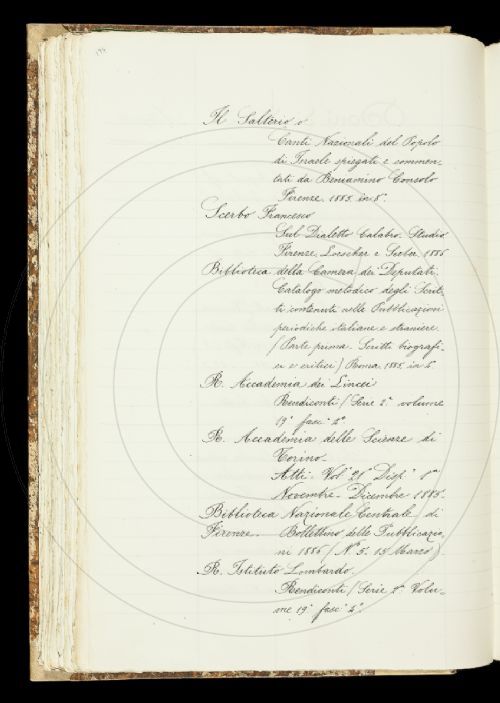 Il Salterio o
Canti Nazionali del Popolo
di Israele spiegati e commen-
tati da Beniamino Consolo
Firenze. 1885. in 8°.
Scerbo Francesco
Sul Dialetto Calabro. Studio
Firenze. Loescher e Seeber. 1886
Biblioteca della Camera dei Deputati.
Catalogo metodico degli Scrit-
ti contenuti nelle Pubblicazioni
periodiche italiane e straniere.
(Parte prima. Scritti biografi-
ci e critici) Roma. 1885. in 8°
R. Accademia dei Lincei
Rendiconti (Serie 2ª volume
19° fasc° 2°
R. Accademia delle Scienze di
Torino.
Atti. Vol° 21 Disp° 1ª
Novembre. Dicembre 1885.
Biblioteca Nazionale Centrale di
Firenze. Bollettino delle Pubblicazio
ni 1886 (N° 5. 15 Marzo)
R. Istituto Lombardo.
Rendiconti (Serie 2ª Volu-
me 19° fasc° 4°